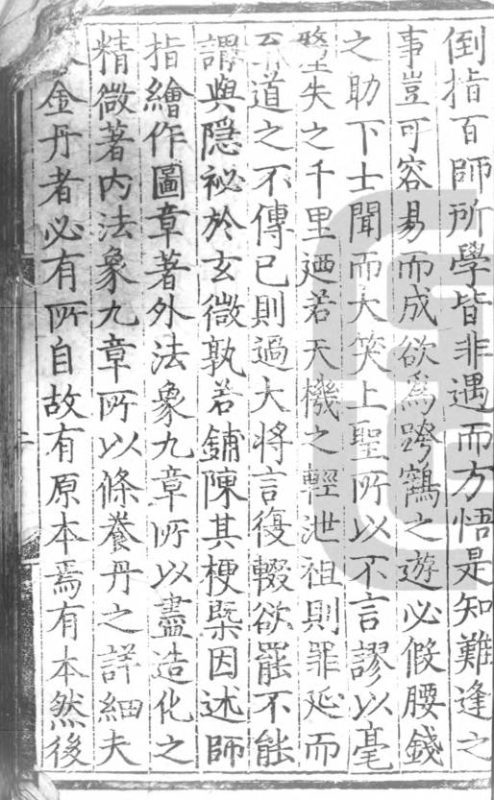 倒指百師所學皆非遇而方悟是知難逢之
事豈可容易而成欲為跨鶴之遊必假腰錢
之助下士聞而大笑上聖所以不言謬以毫
釐失之千里廼若天機之輕泄祖則罪延而
至道之不傳已則過大將言復輟欲罷不能
謂與隱祕於玄微孰若鋪陳其梗槩因述師
指繪作圖章著外法象九章所以盡造化之
精微著內法象九章所以條養丹之詳細夫
金丹者必有所自故有原本焉有本然後